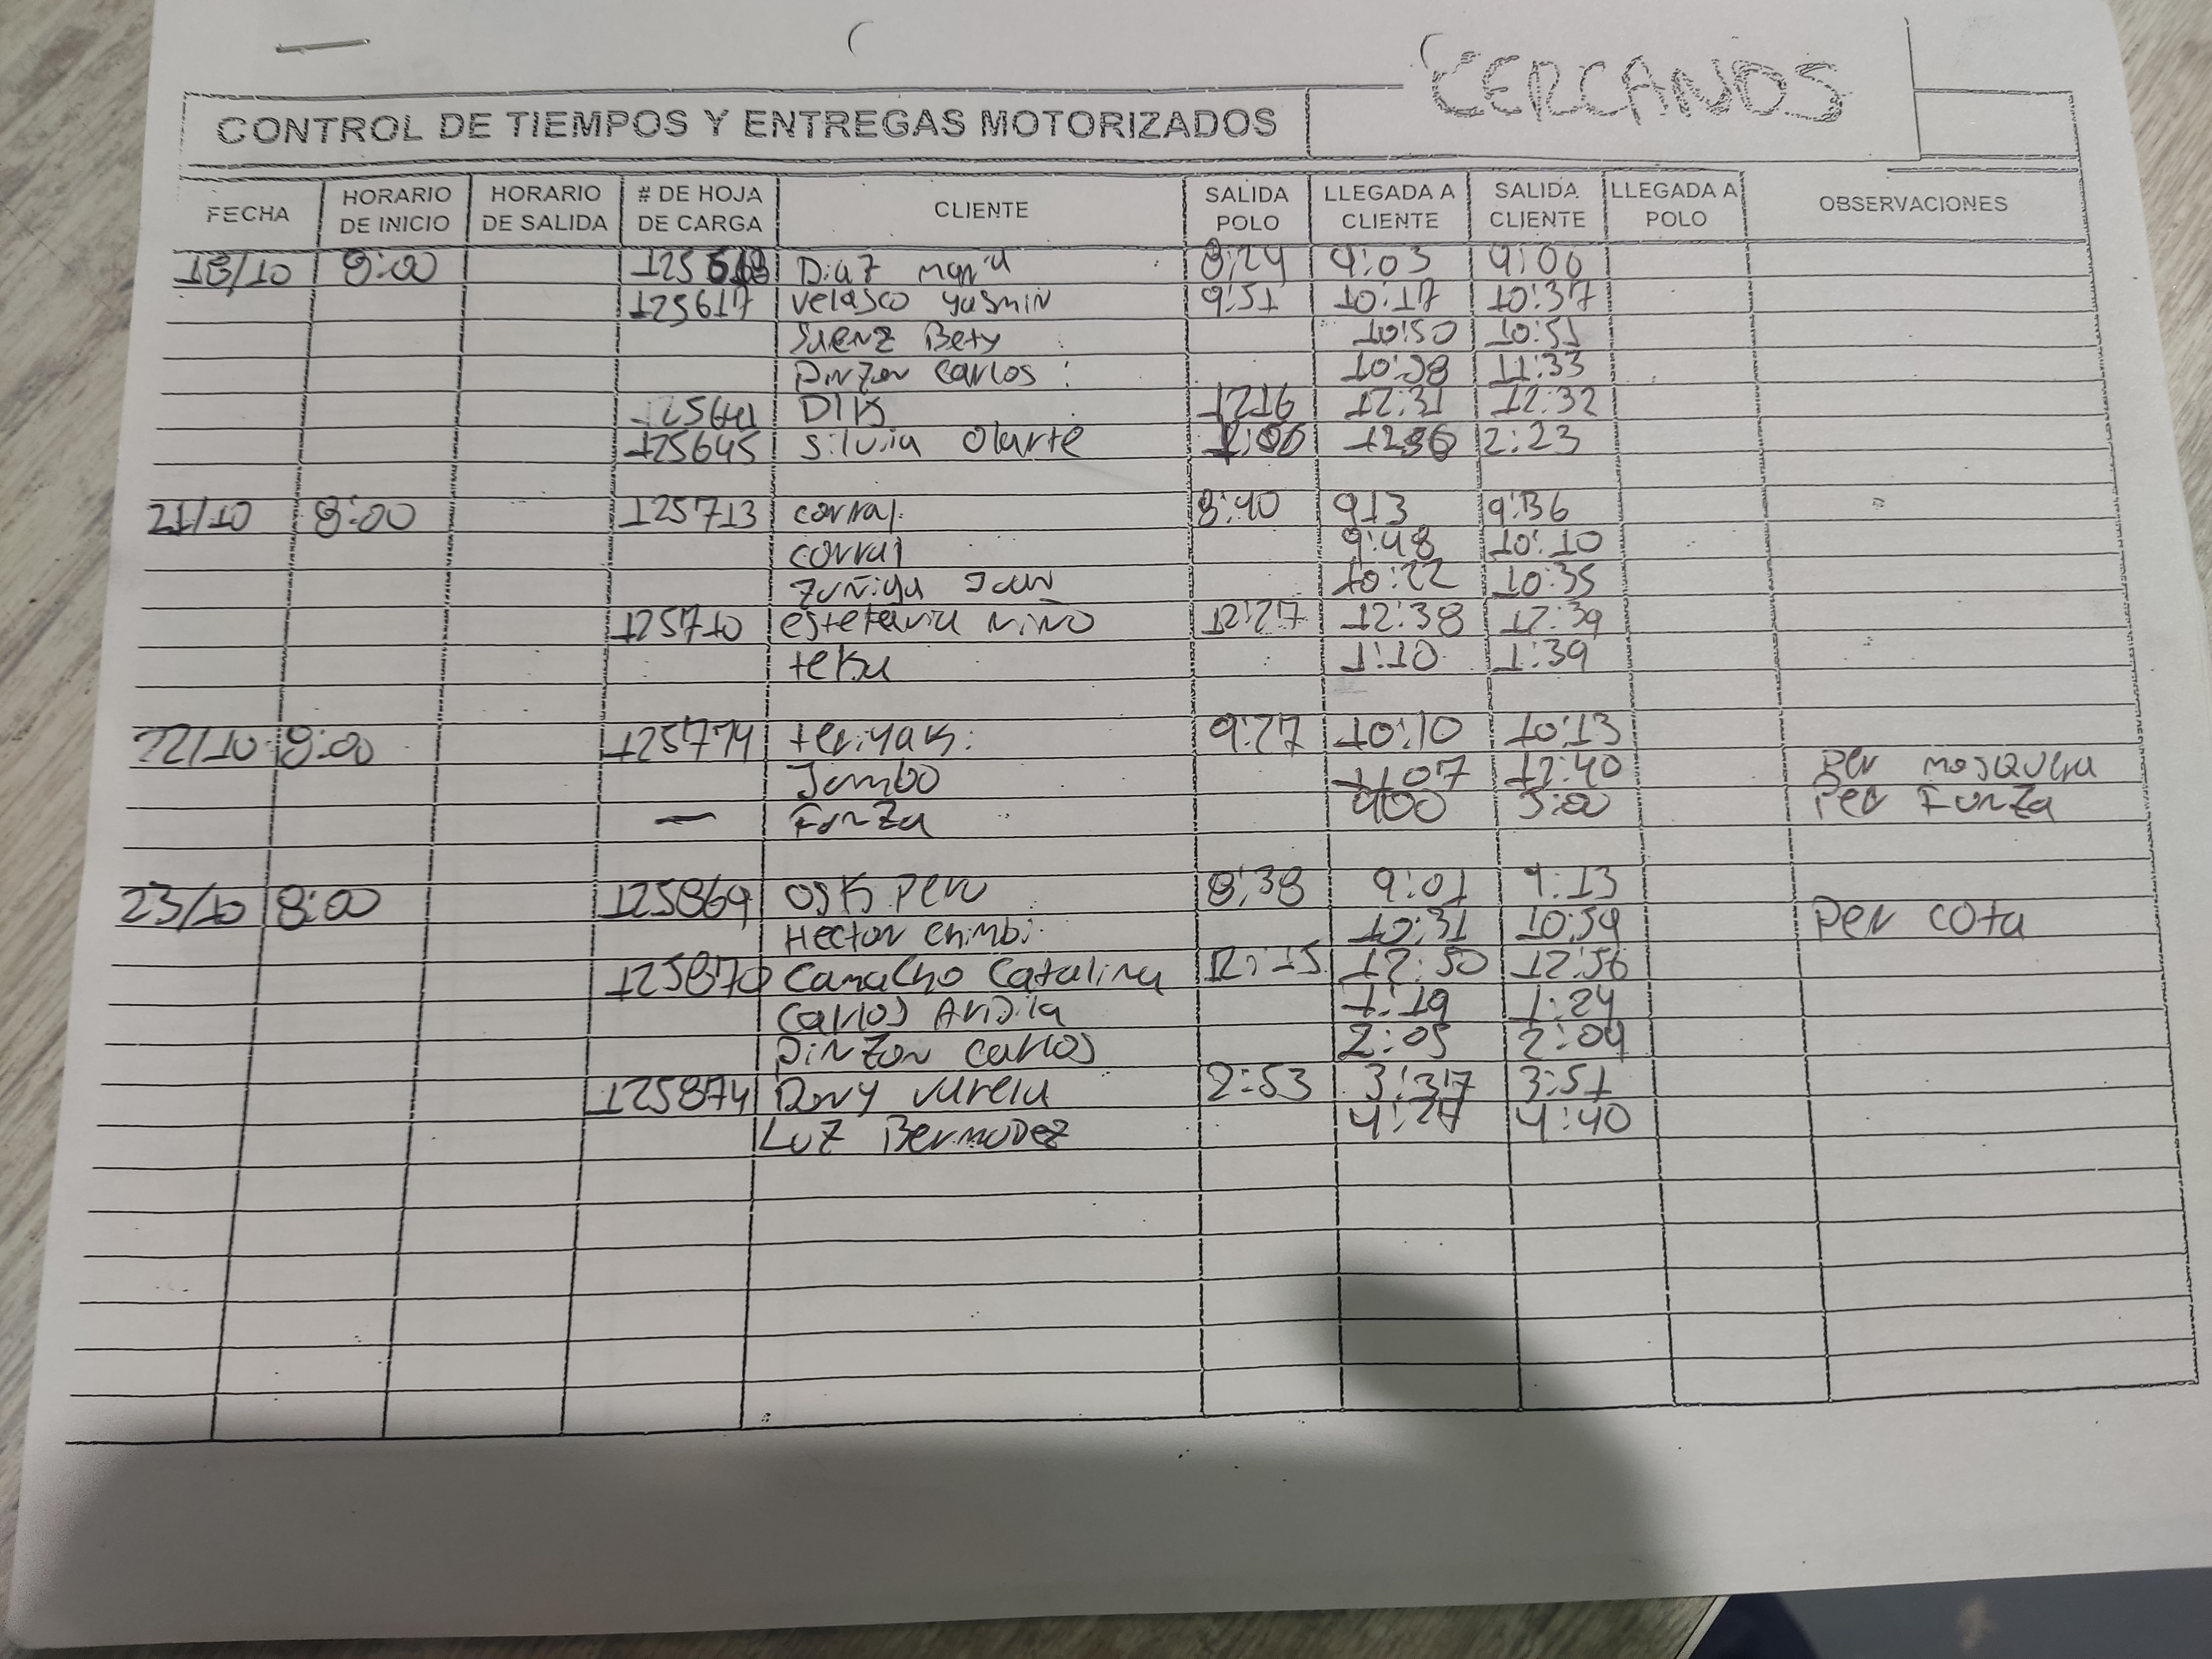 CERCANOS
CONTROL DE TIEMPOS Y ENTREGAS MOTORIZADOS
FECHA HORARIO DE INICIO HORARIO DE SALIDA # DE HOJA DE CARGA CLIENTE SALIDA POLO LLEGADA A CLIENTE SALIDA CLIENTE LLEGADA A POLO OBSERVACIONES
18/10 8:00 Diaz maria 8:24 9:03 9:06
125617 velasco yasmin 9:51 10:17 10:37
Saenz Bety 10:50 10:51
Pinzon Carlos 10:58 11:33
125641 DIK 1216 12:31 12:32
125645 silvia Olarte 2:23
21/10 8:00 125713 corral 8:40 913 9:36
corral 9:48 10:10
Zuñiga Juan 10:22 10:35
125710 estefania niño 12:27 12:38 12:39
teku 1:10 1:39
22/10 8:00 125774 teriyaki 9:27 10:10 10:13
Jumbo 1107 12:40 Per mosquera
— Funza 400 5:00 Per Funza
23/10 8:00 125869 osk Peru 8:38 9:01 9:13
Hector chimbi 10:31 10:59 Per cota
125870 Camacho Catalina 12:15 12:50 12:56
Carlos Ardila 1:19 1:24
Pinzon Carlos 2:05 2:09
125874 Dony varela 2:53 3:37 3:51
Luz Bermudez 4:27 4:40